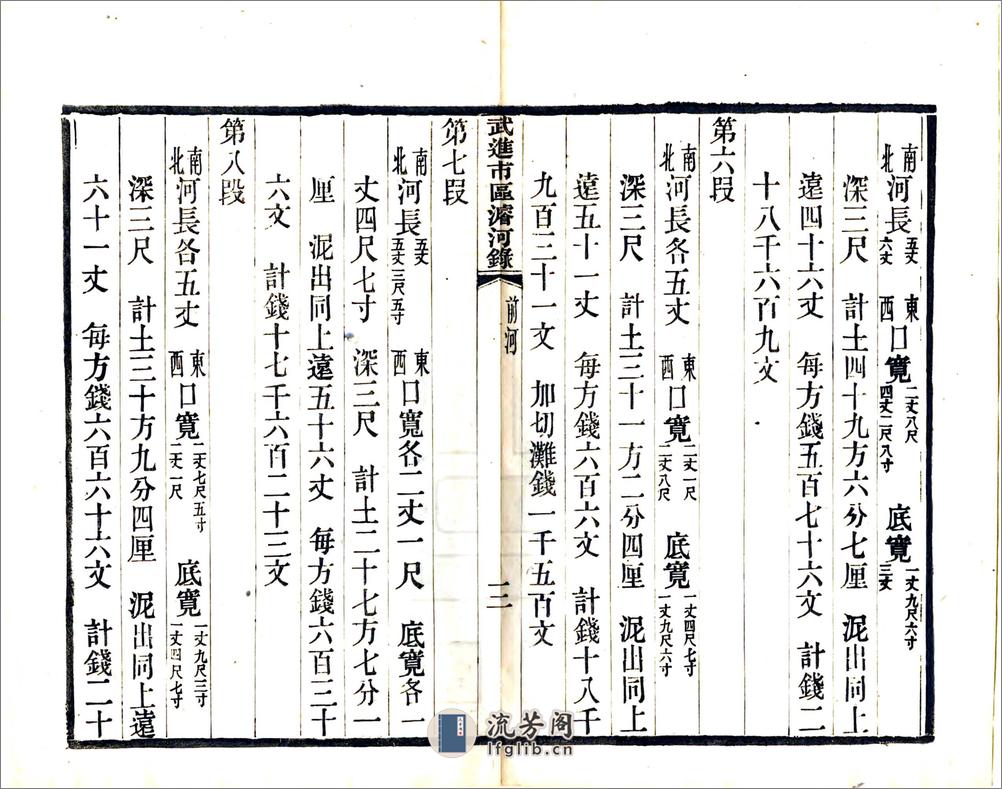 南北河長五丈六丈　東西口寬二丈八尺四丈二尺八寸　底寬一丈九尺六寸三丈
深三尺　計土四十九方六分七厘　泥出同上
遠四十六丈　每方錢五百七十六文　計錢二
十八千六百九文
第六段
南北河長各五丈　東西口寬二丈一尺二丈八尺　底寬一丈四尺七寸一丈九尺六寸
深三尺　計土三十一方二分四厘　泥出同上
遠五十一丈　每方錢六百六文　計錢十八千
九百三十一文　加切灘錢一千五百文
武進市區濬河錄　前河　三
第七段
南北河長五丈五丈三尺五寸　東西口寬各二丈一尺　底寬各一
丈四尺七寸　深三尺　計土二十七方七分一
厘　泥出同上遠五十六丈　每方錢六百三十
六文　計錢十七千六百二十三文
第八段
南北河長各五丈　東西口寬二丈七尺五寸二丈一尺　底寬一丈九尺三寸一丈四尺七寸
深三尺　計土三十方九分四厘　泥出同上遠
六十一丈　每方錢六百六十六文　計錢二十
流芳阁
lfglib.cn